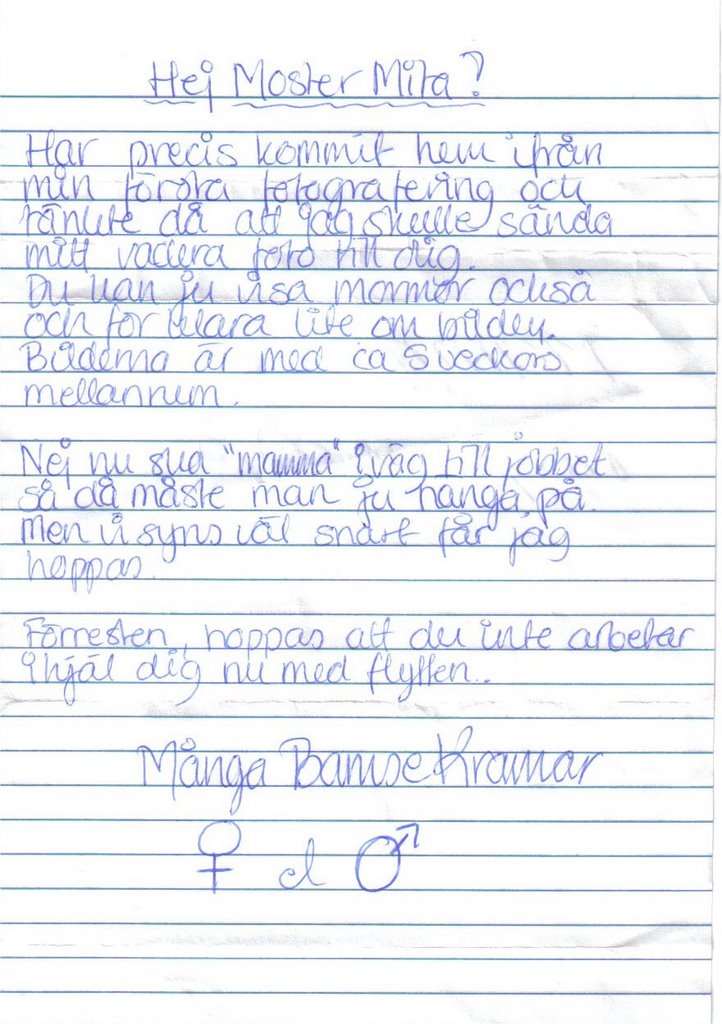 Hej Moster Mita!
Har precis kommit hem ifrån
min första fotografering och
tänkte då att jag skulle sända
mitt vackra foto till dig.
Du kan ju visa mormor också
och förklara lite om bilden.
Bilderna är med ca 5 veckors
mellanrum.
Nej nu ska "mamma" iväg till jobbet
så då måste man ju hänga på.
Men vi syns väl snart får jag
hoppas.
Förresten, hoppas att du inte arbetar
ihjäl dig nu med flytten..
Många BamseKramar
♀ el ♂